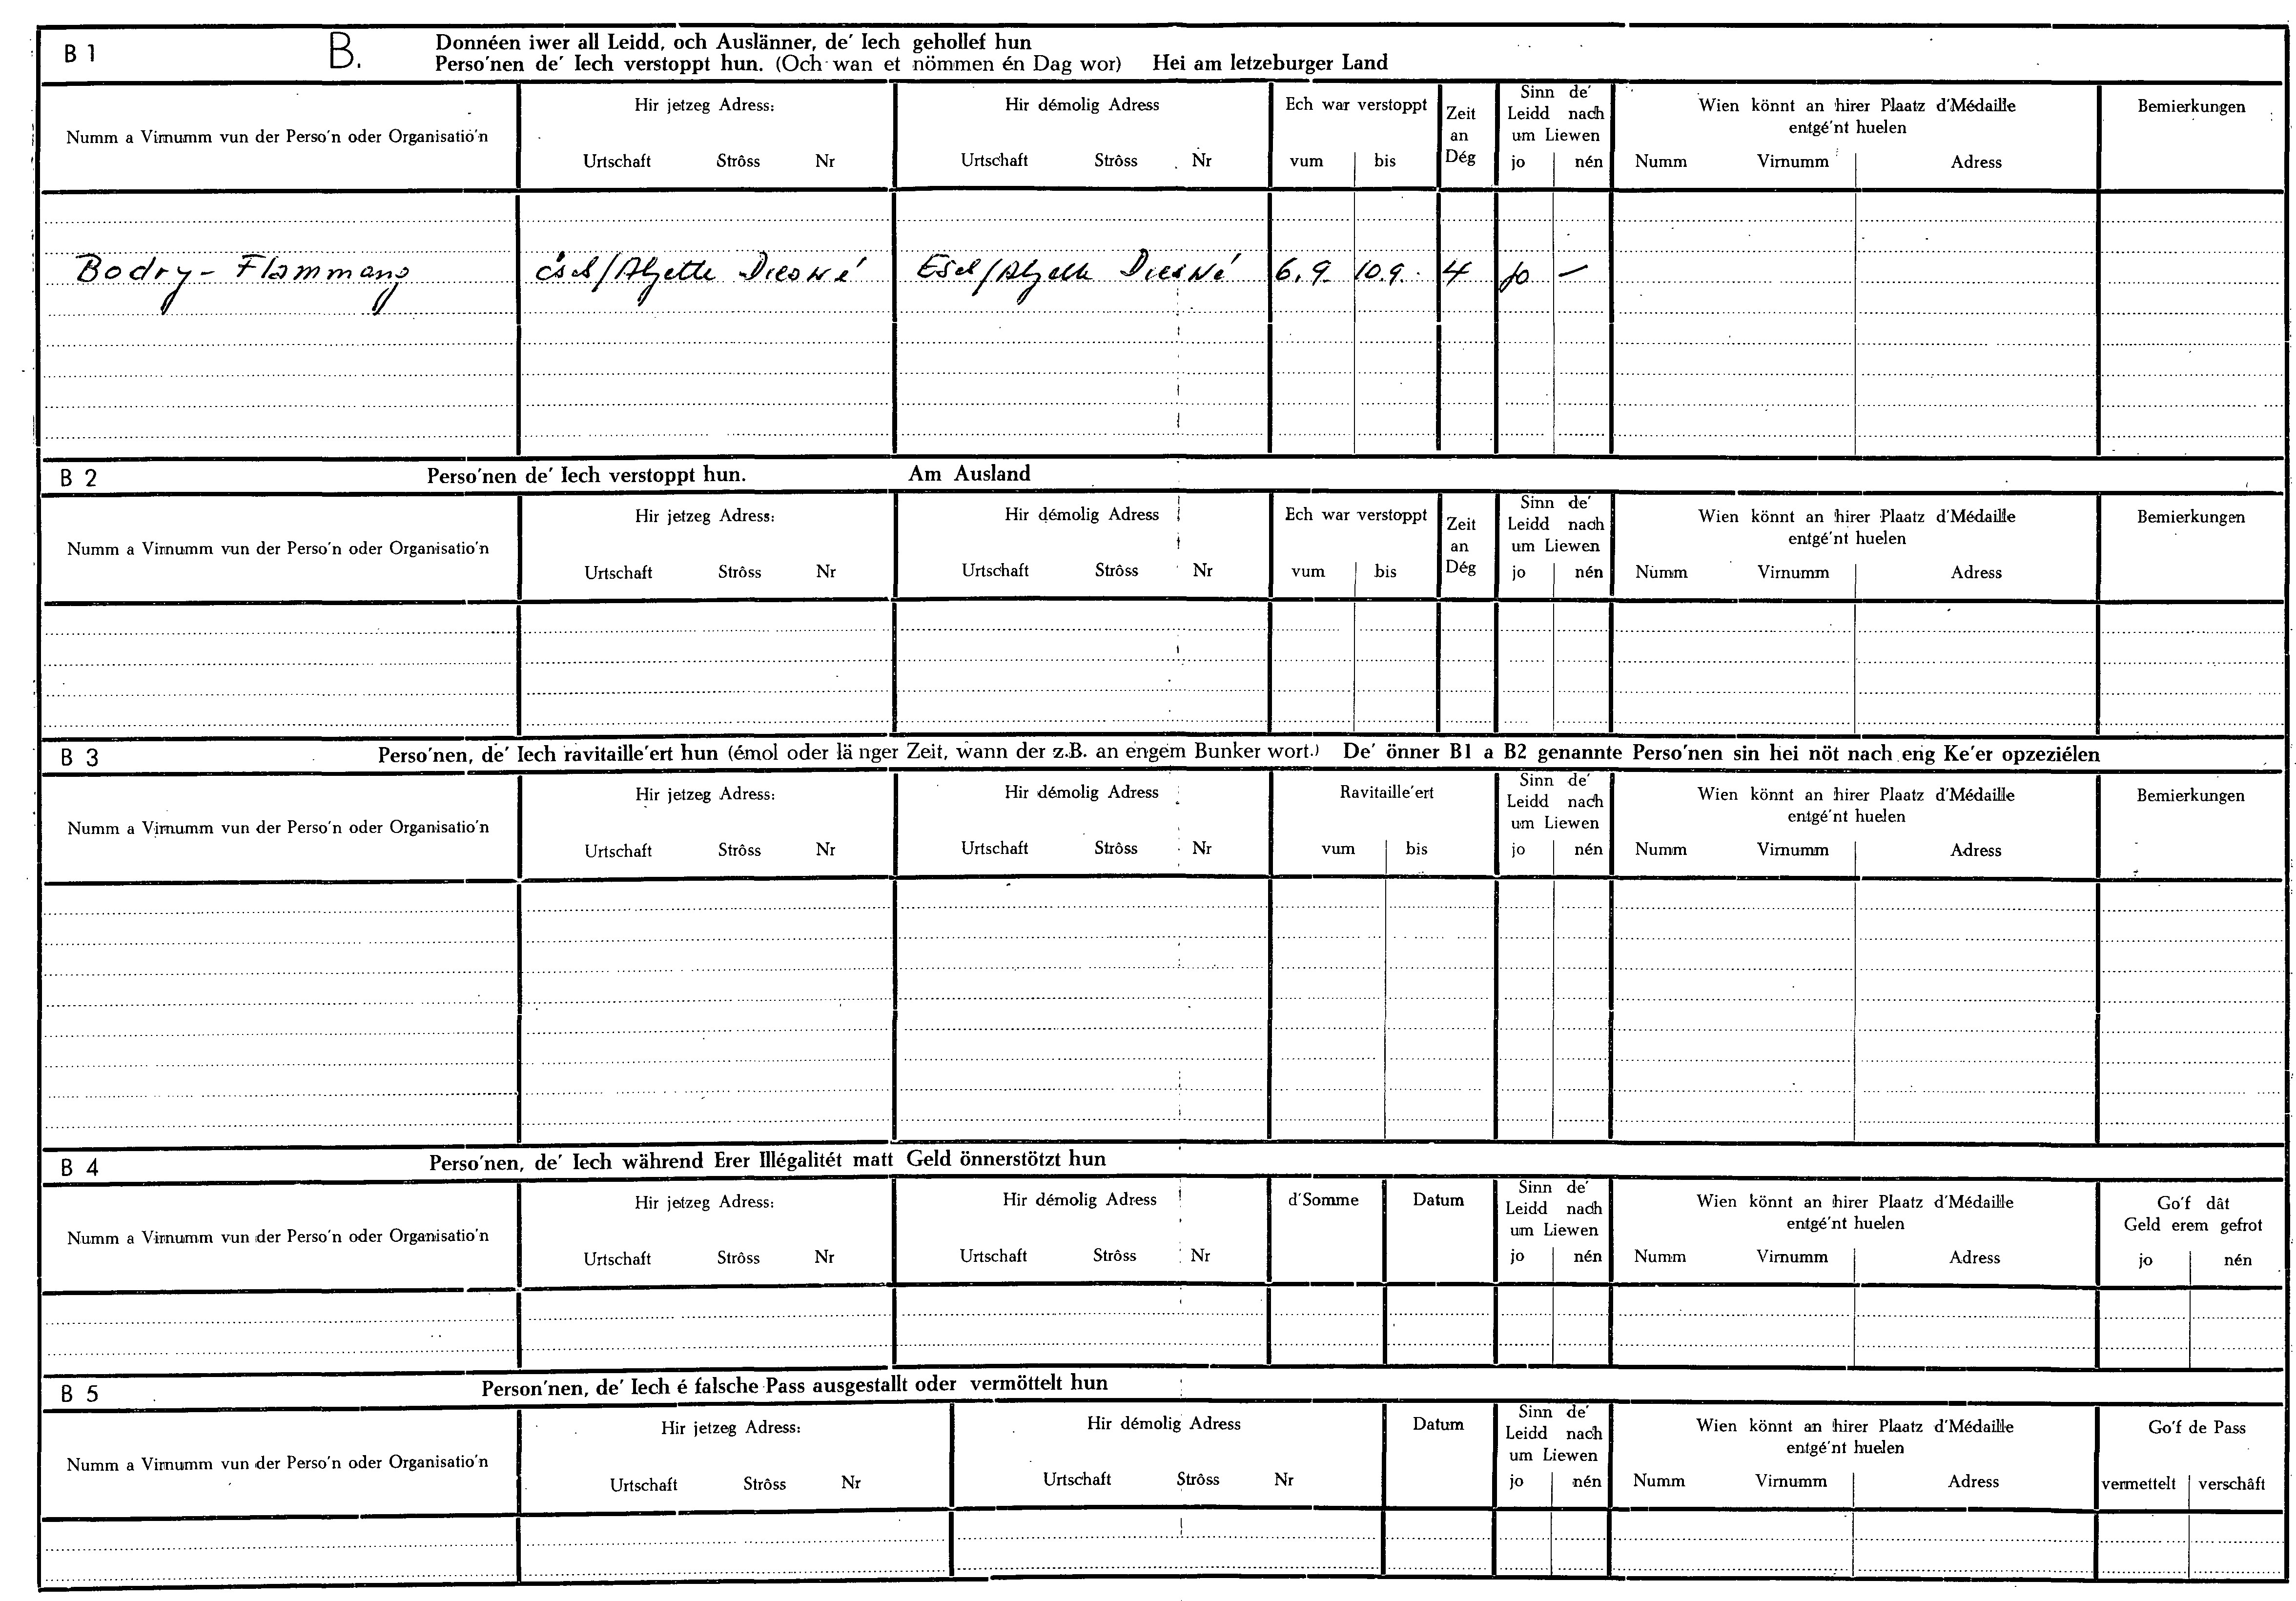 B 1 B. Donnéen iwer all Leidd, och Auslänner, de' Iech gehollef hun
Perso'nen de' Iech verstoppt hun. (Och wan et nömmen én Dag wor) Hei am letzeburger Land
Numm a Virnumm vun der Perso'n oder Organisatio'n
Hir jetzeg Adress:
Urtschaft Strôss Nr
Hir démolig Adress
Urtschaft Strôss Nr
Ech war verstoppt
vum bis
Zeit
an
Dég
Sinn de'
Leidd nach
um Liewen
jo nén
Wien könnt an hirer Plaatz d'Médaille
entgé'nt huelen
Numm Virnumm Adress
Bemierkungen
Bodry - Flammang Esel/Alzette Esel/Alzette 6.9. 10.9. 4 jo —
B 2 Perso'nen de' Iech verstoppt hun. Am Ausland
Numm a Virnumm vun der Perso'n oder Organisatio'n
Hir jetzeg Adress:
Urtschaft Strôss Nr
Hir démolig Adress
Urtschaft Strôss Nr
Ech war verstoppt
vum bis
Zeit
an
Dég
Sinn de'
Leidd nach
um Liewen
jo nén
Wien könnt an hirer Plaatz d'Médaille
entgé'nt huelen
Numm Virnumm Adress
Bemierkungen
B 3 Perso'nen, de' Iech ravitaille'ert hun (émol oder länger Zeit, wann der z.B. an engem Bunker wort.) De' önner B1 a B2 genannte Perso'nen sin hei nöt nach eng Ke'er opzeziélen
Numm a Virnumm vun der Perso'n oder Organisatio'n
Hir jetzeg Adress:
Urtschaft Strôss Nr
Hir démolig Adress
Urtschaft Strôss Nr
Ravitaille'ert
vum bis
Sinn de'
Leidd nach
um Liewen
jo nén
Wien könnt an hirer Plaatz d'Médaille
entgé'nt huelen
Numm Virnumm Adress
Bemierkungen
B 4 Perso'nen, de' Iech während Erer Illégalitét matt Geld önnerstötzt hun
Numm a Virnumm vun der Perso'n oder Organisatio'n
Hir jetzeg Adress:
Urtschaft Strôss Nr
Hir démolig Adress
Urtschaft Strôss Nr
d'Somme
Datum
Sinn de'
Leidd nach
um Liewen
jo nén
Wien könnt an hirer Plaatz d'Médaille
entgé'nt huelen
Numm Virnumm Adress
Go'f dât
Geld erem gefrot
jo nén
B 5 Person'nen, de' Iech é falsche Pass ausgestallt oder vermöttelt hun
Numm a Virnumm vun der Perso'n oder Organisatio'n
Hir jetzeg Adress:
Urtschaft Strôss Nr
Hir démolig Adress
Urtschaft Strôss Nr
Datum
Sinn de'
Leidd nach
um Liewen
jo nén
Wien könnt an hirer Plaatz d'Médaille
entgé'nt huelen
Numm Virnumm Adress
Go'f de Pass
vermettelt verschâft